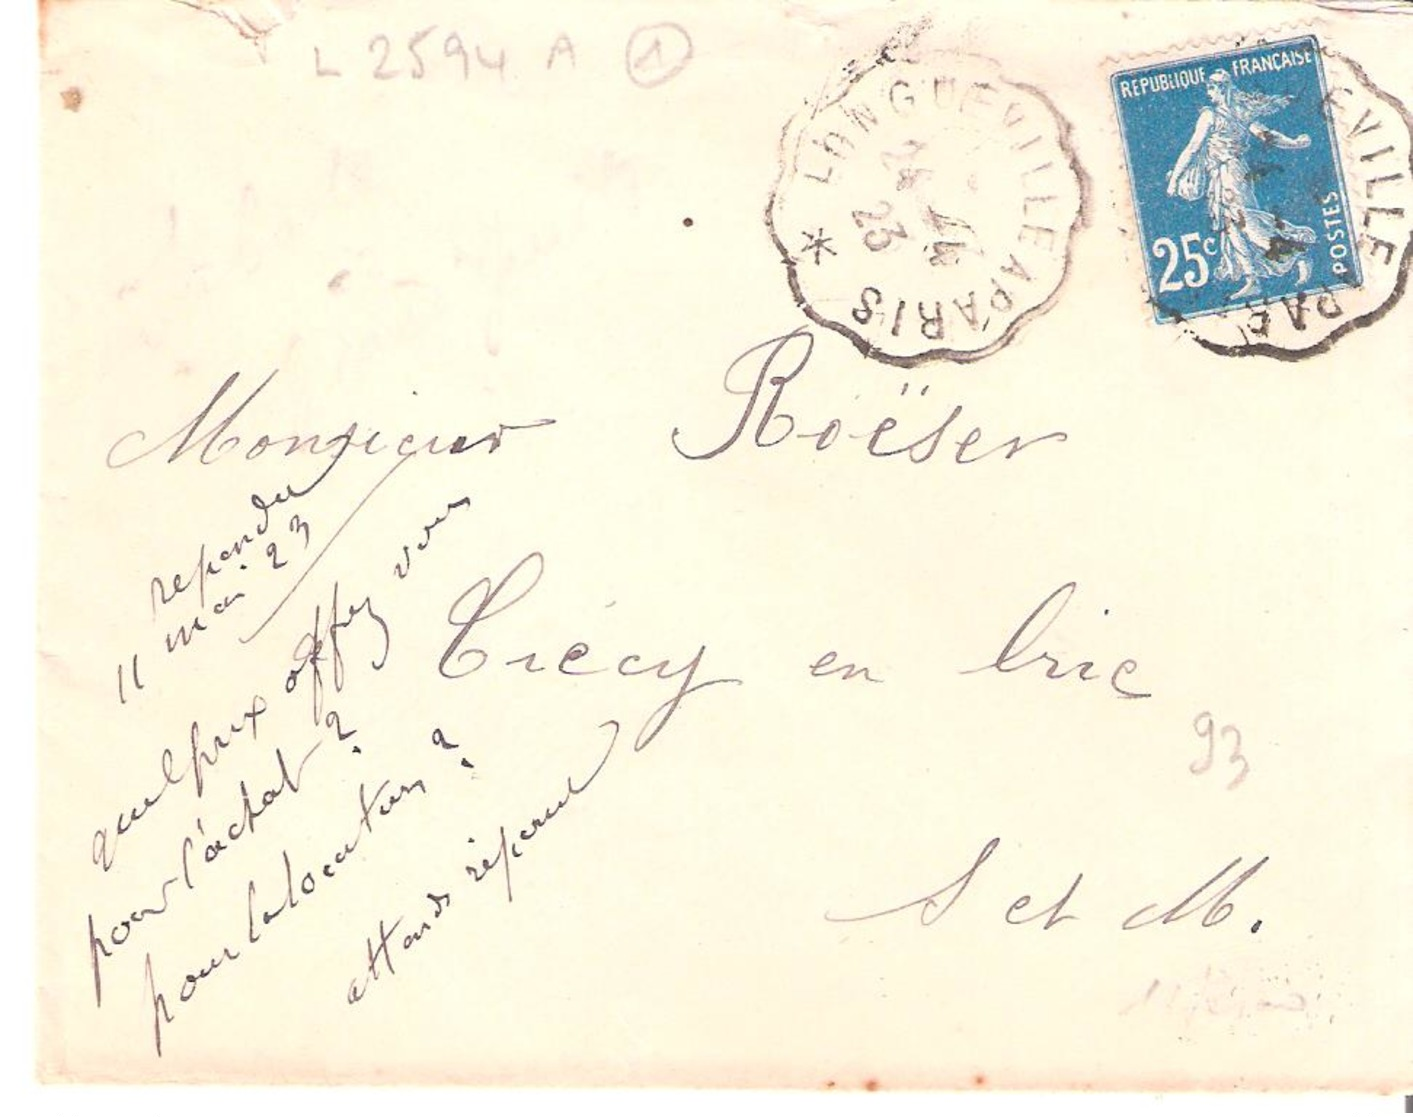 L 2594 A 1
LONGUEVILLE A PARIS
24
-4
23
REPUBLIQUE FRANÇAISE
25c
POSTES
EVILLE A PAR
Monsieur Roëser
Crécy en brie
S et M.
93
repondu
11 mai 23
quel prix offrez vous
pour l'achat ?
pour la location ?
attends réponse